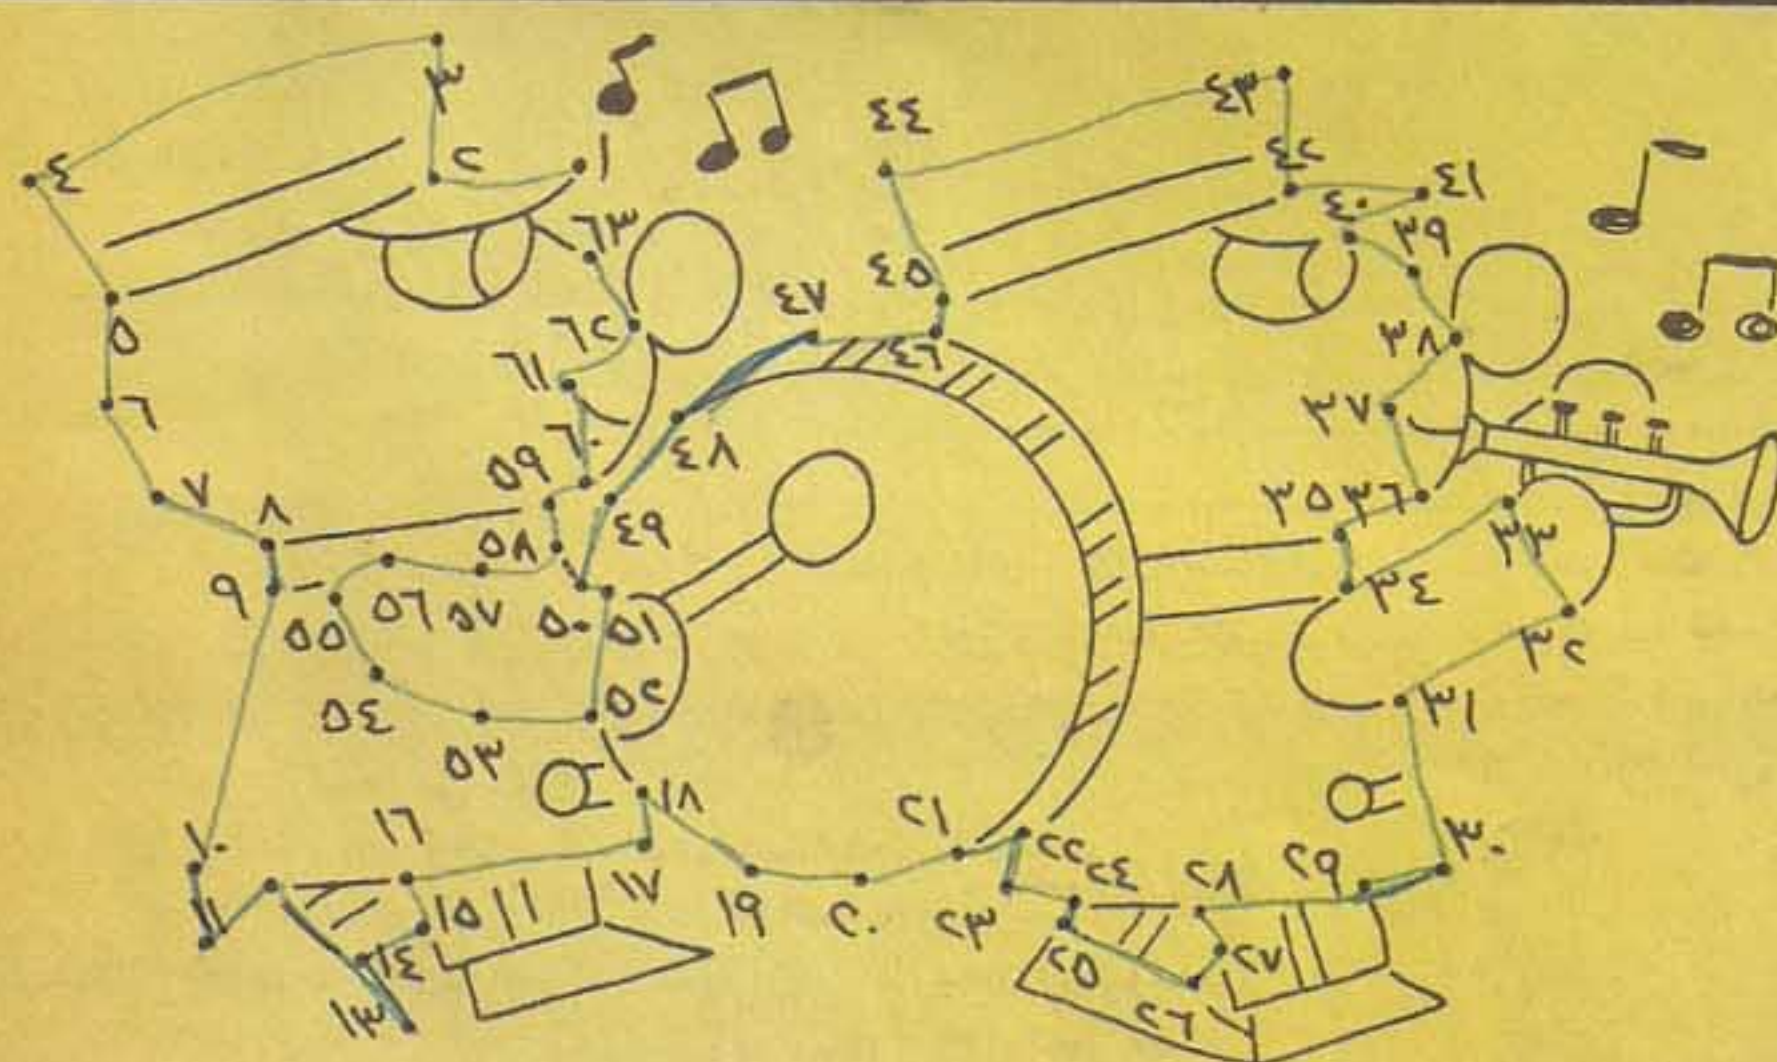 ١
٢
٣
٤
٥
٦
٧
٨
٩
١٠
١١
١٣
١٤
١٥
١٦
١٧
١٨
١٩
٢٠
٢١
٢٢
٢٣
٢٤
٢٥
٢٦
٢٧
٢٨
٢٩
٣٠
٣١
٣٢
٣٣
٣٤
٣٥
٣٦
٣٧
٣٨
٣٩
٤٠
٤١
٤٢
٤٣
٤٤
٤٥
٤٦
٤٧
٤٨
٤٩
٥٠
٥١
٥٢
٥٣
٥٤
٥٥
٥٦
٥٧
٥٨
٥٩
٦٠
٦١
٦٢
٦٣